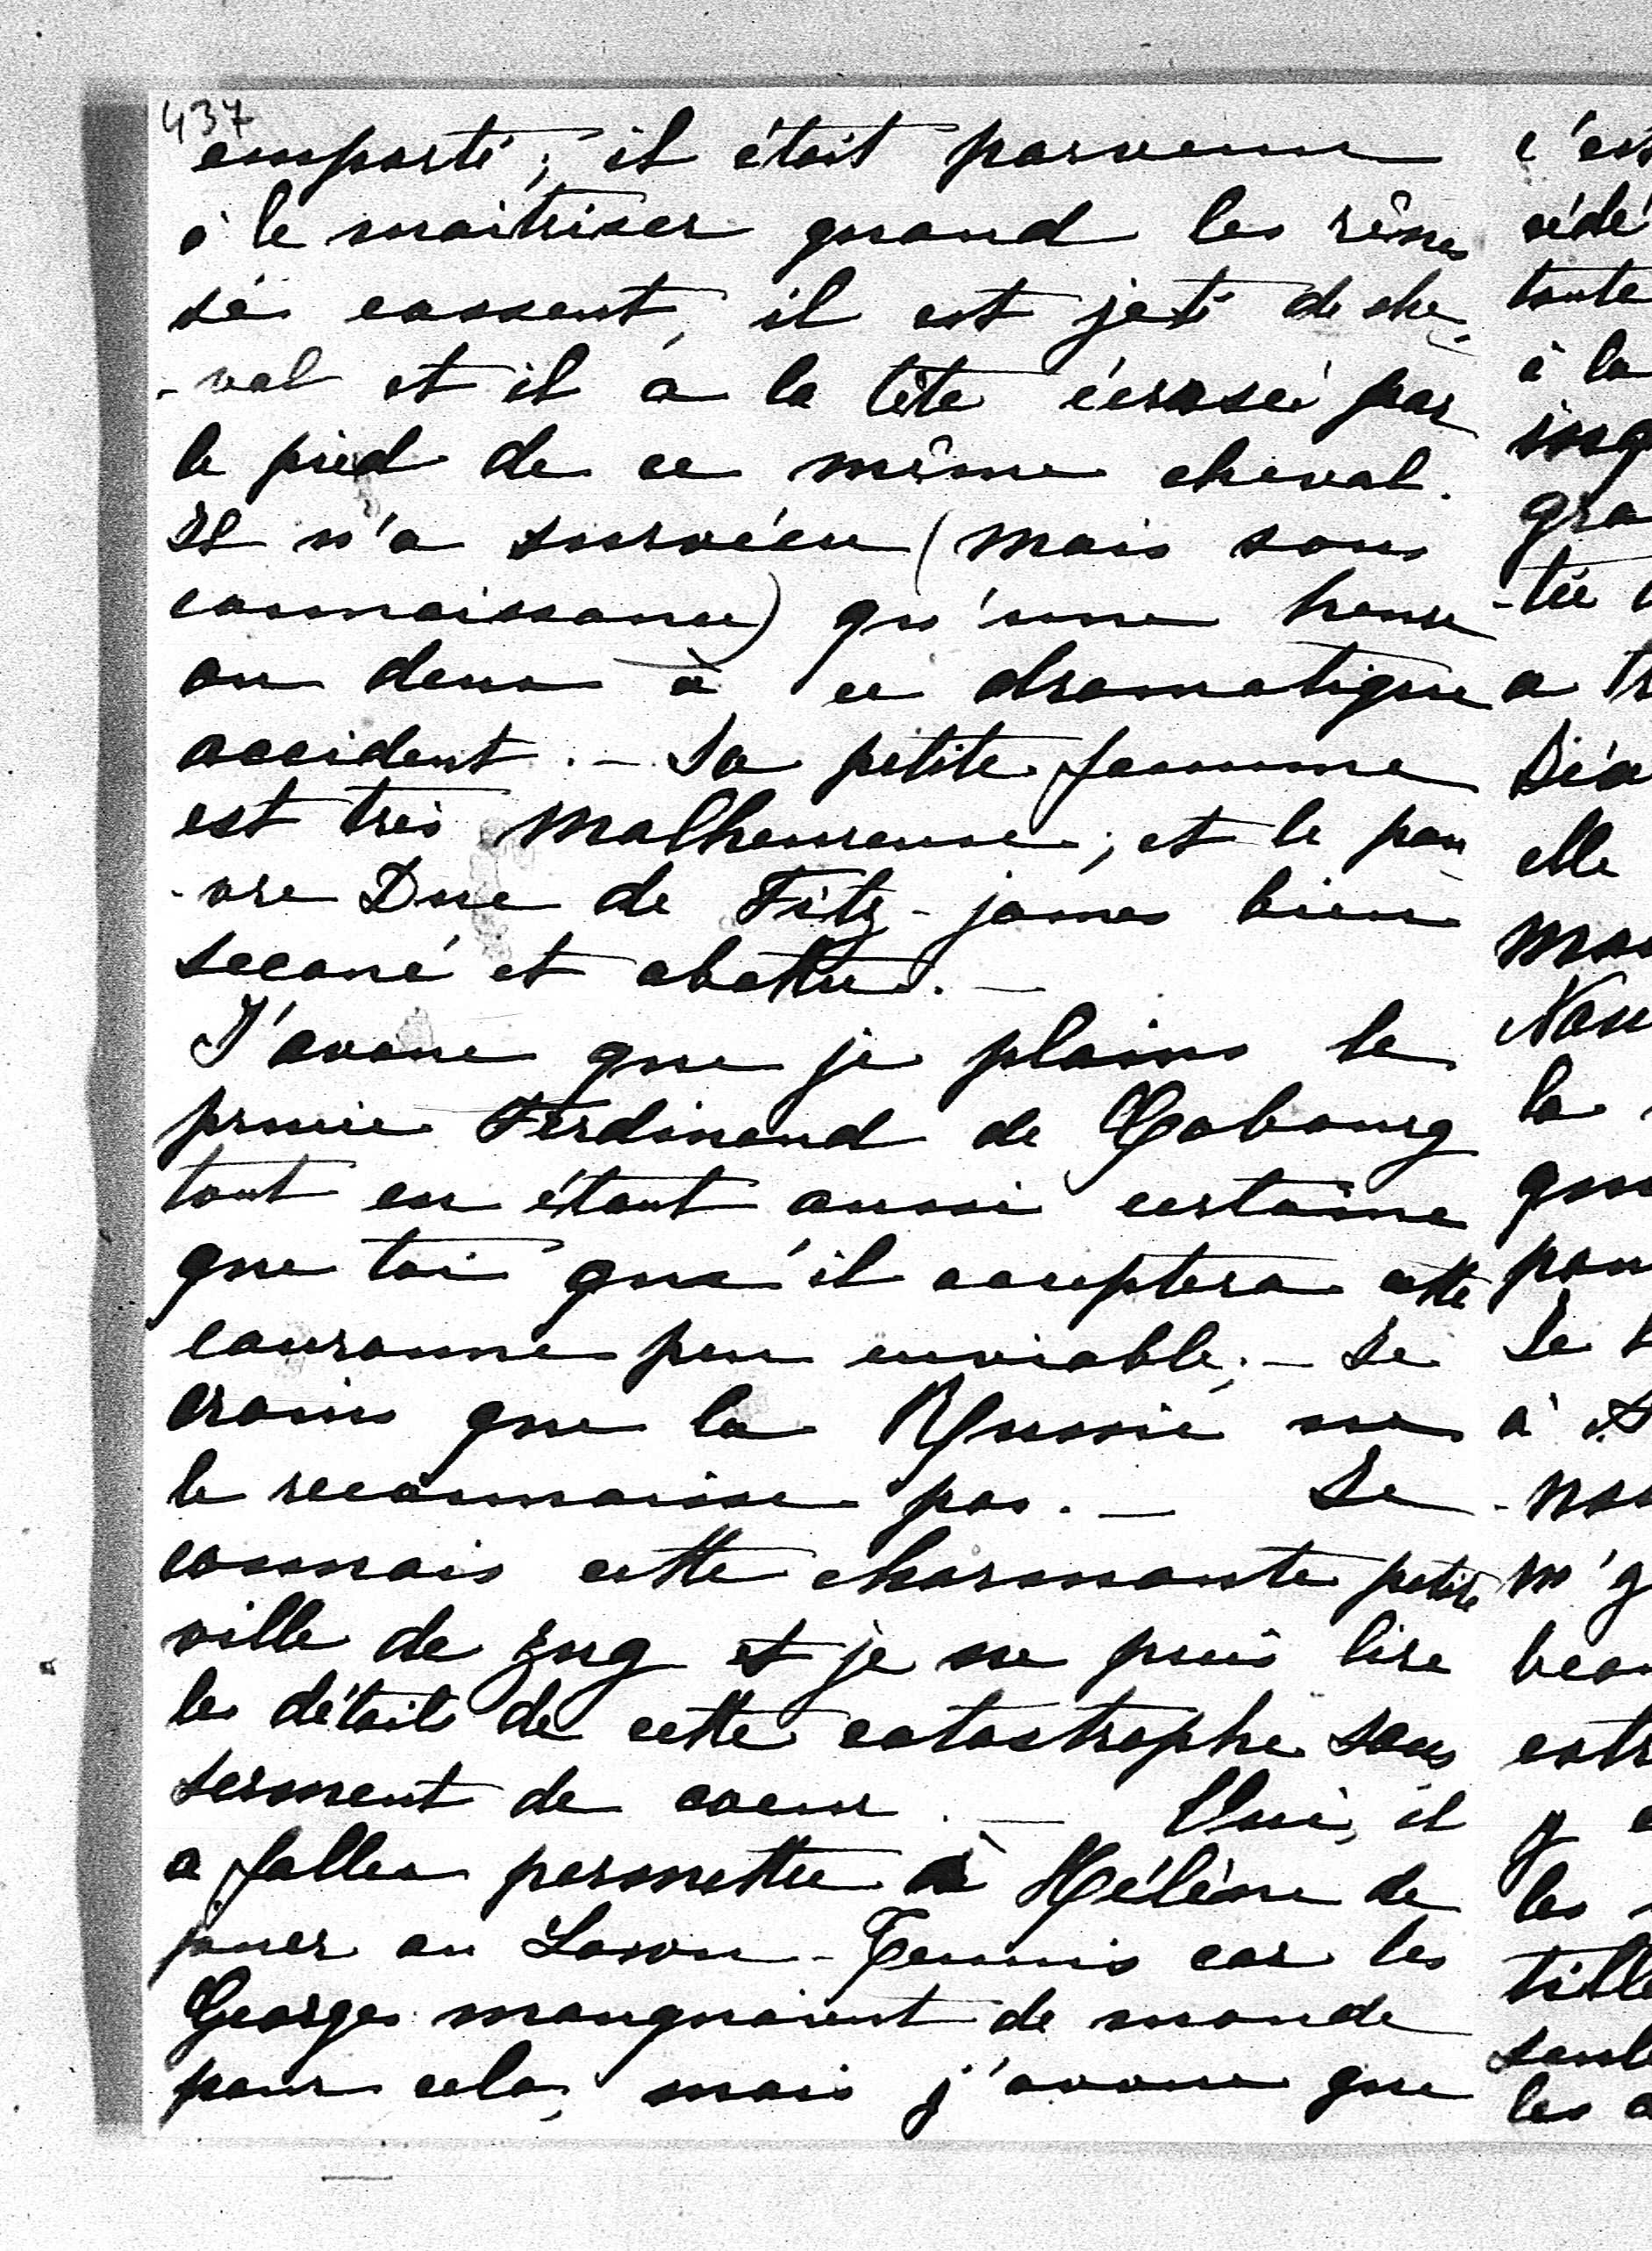 437
emporté; il était parvenu
à le maitriser quand les rênes
se cassent, il est jeté de che-
-val et il a la tête écrasée par
le pied de ce même cheval.
Il n'a survécu (mais sans
connaissance) qu'une heure
ou deux à ce dramatique
accident. - Sa petite femme
est très malheureuse; et le pau
-vre Duc de Fitz-james bien
secoué et abattu. -
J'avoue que je plains le
prince Ferdinand de Cobourg
tout en étant aussi certaine
que toi qu'il acceptera cette
couronne peu enviable; - Je
crains que la Russie ne
le reconnaisse pas. - Je
connais cette charmante petite
ville de Zug et je ne puis lire
les détails de cette catastrophe sans
serrement de coeur. - Oui, il
a fallu permettre à Hélène de
jouer au Lawn-Tennis car les
Georges manquaient de monde
pour cela, mais j'avoue que
c'est
toute
à la
gra
-tée
a tr
elle
mou
Nou
la
pour
Je
à
les
tille
les a